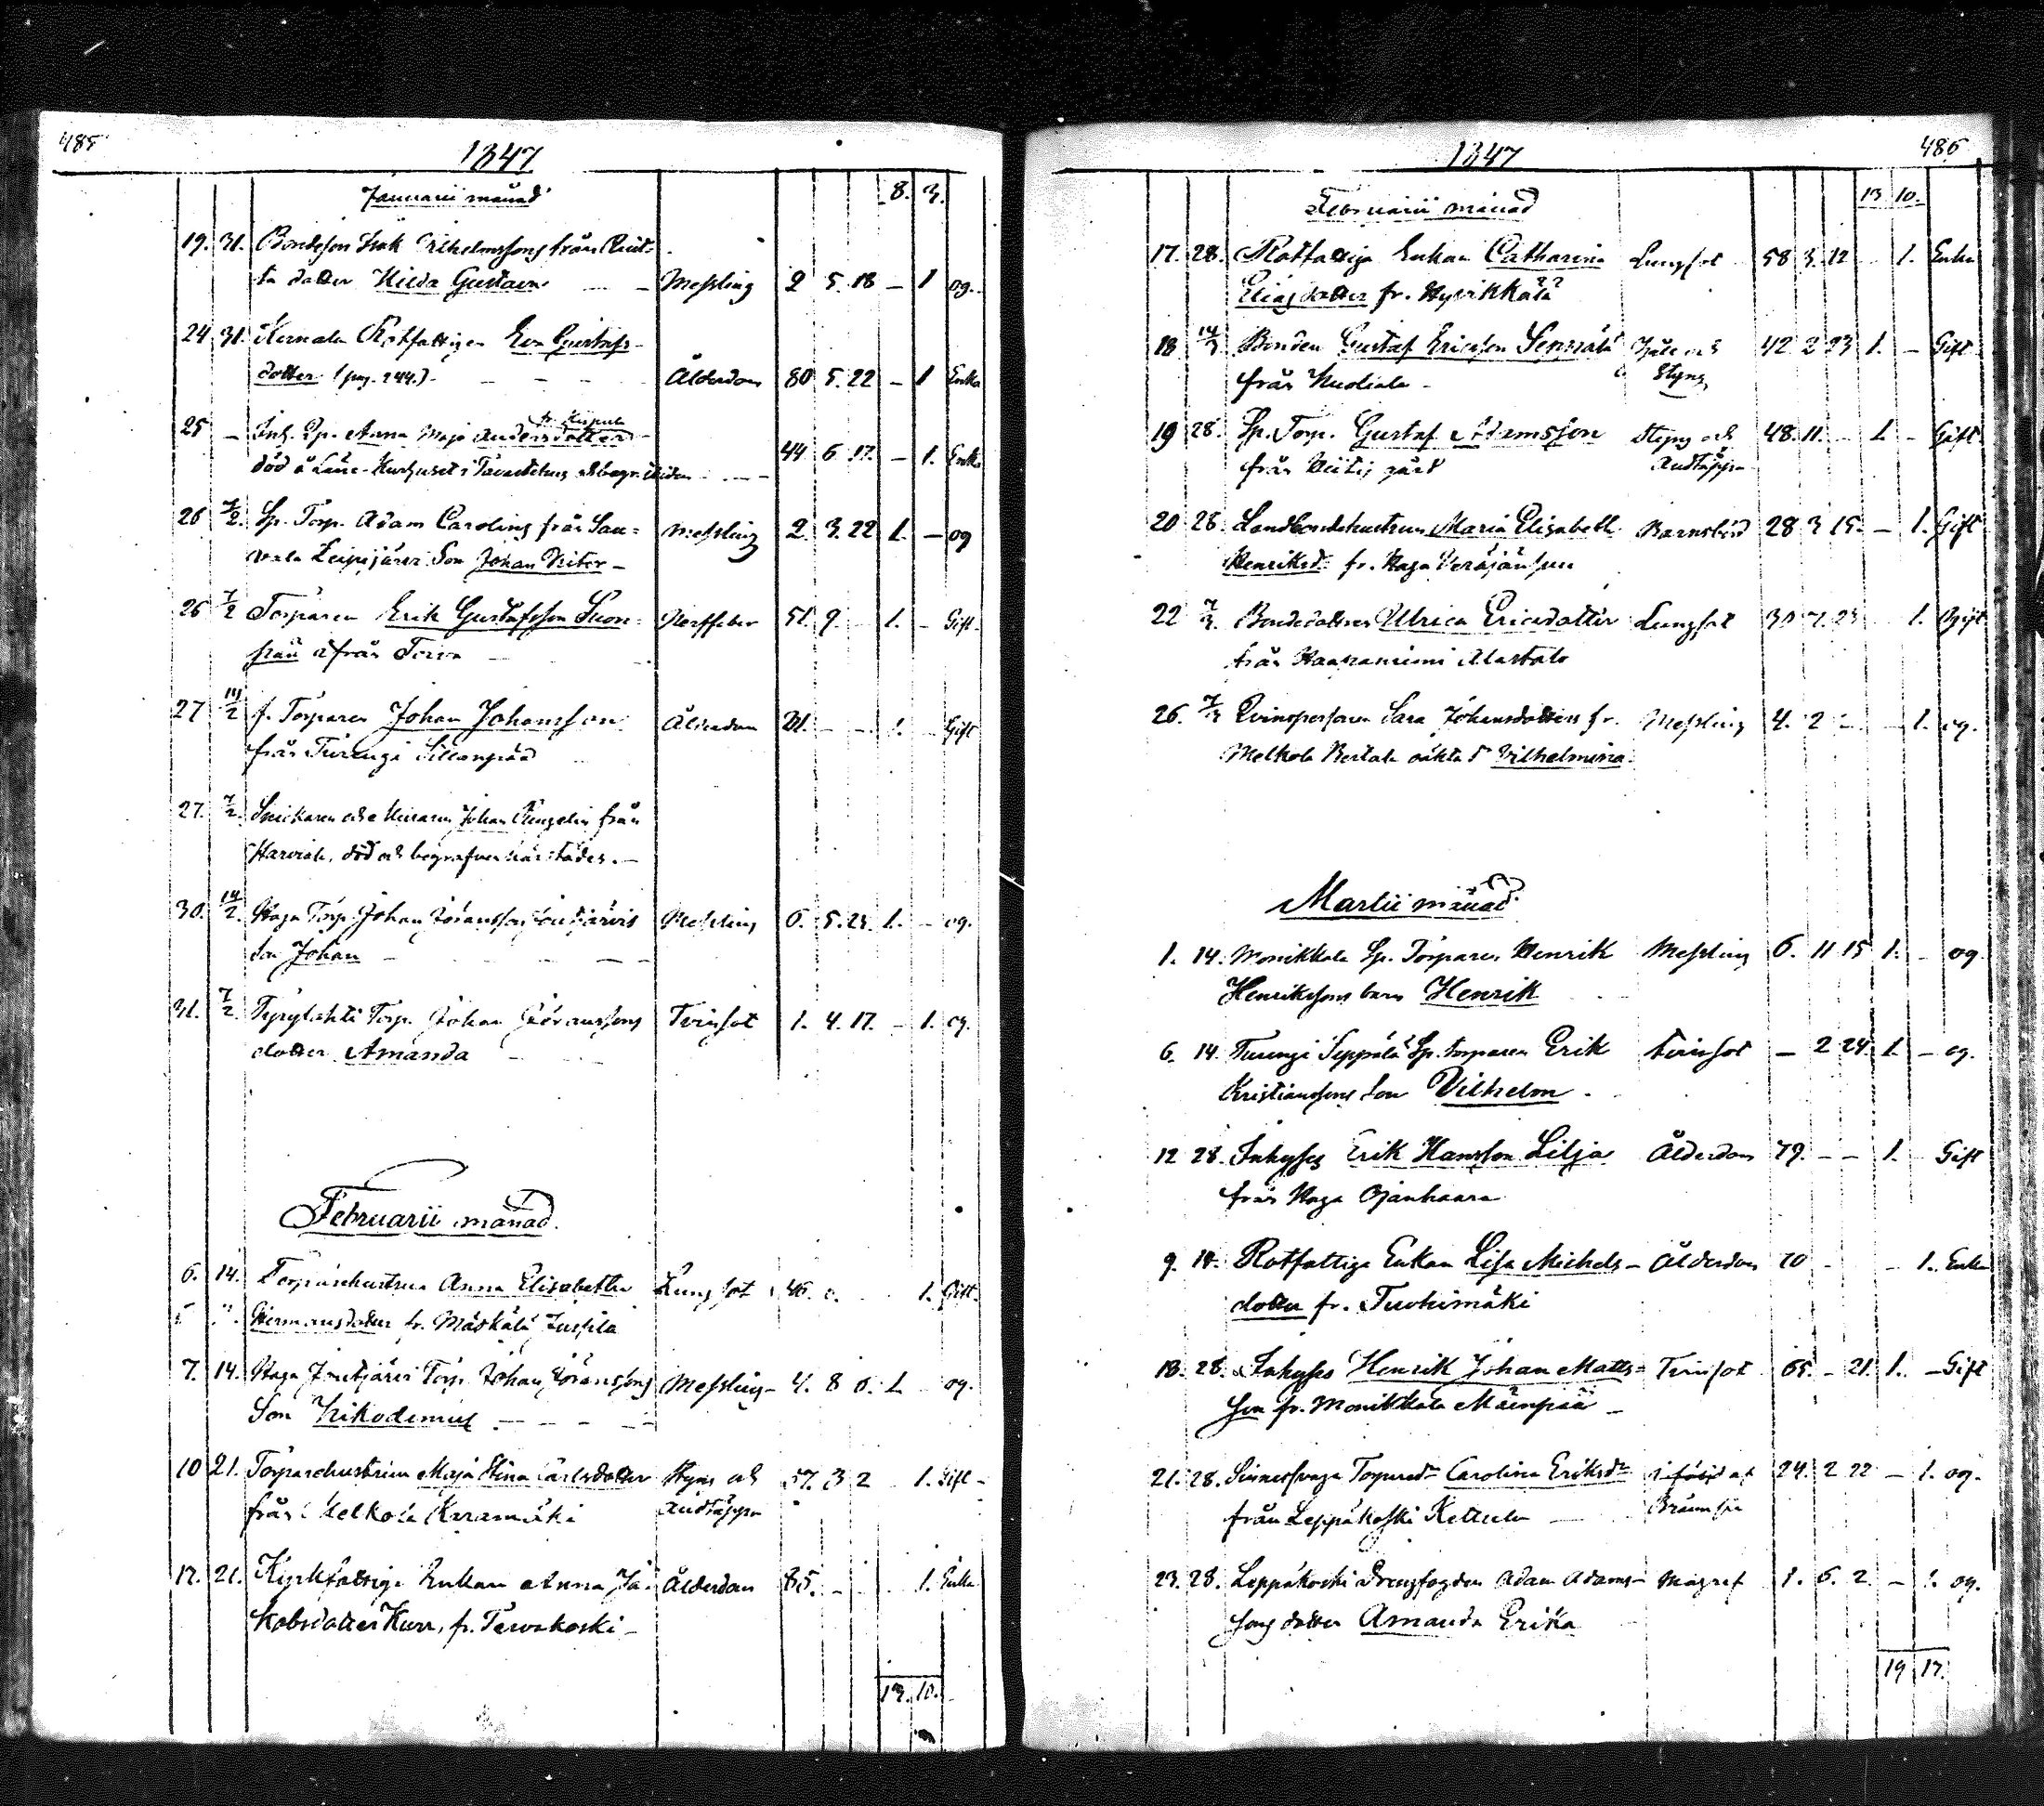 485
1847
Januarii månad 8. 3.
19. 31. Bondeson Isak Vilhelmssons från
ta dotter Hilda Gustava — Messling 2 5. 18 — 1 og.
24 31. Kernala Rotfattigen Eva Gustafs-
dotter (pag. 244.) — Ålderdom 80 5. 22 — 1 Enka
25 — Inh. Anna Maja Andersdotter
död å Läns-Kurhuset i Tavastehus och begr. 44 6 17. — 1. Enka
26 7/2. Sp. Torp. Adam Carolins från Sau=
vala Leipijärvi Son Johan Viktor — Messling 2. 3. 22 1. — og
26 7/2 Torparen Erik Gustafsson Suon= Nerffeber 51. 9. — 1. — Gift.
pää från
27 14/2 f. Torparen Johan Johansson Ålderdom — — 1. — Gift
från Turengi Sillanpää
27. 7/2. Snickaren och Johan från
Harviala, död och begrafven härstädes. —
30. 14/2. Haga Torp. Johan Göranssons Messling 6. 5. 25. 1. — og.
Son Johan — — —
31. 7/2. Tyrylahti Torp. Johan Göranssons Tvinsot 1. 4. 17. — 1. og.
dotter Amanda
Februarii månad.
6. 14. Torparehustrun Anna Elisabetha Lungsot 46. 1. Gift.
Hermansdotter fr. Mäskälä Jussila
7. 14. Haga Torp. Johan Göranssons Messling — 4. 8 1. og.
Son Nikodemus — — —
10 21. Torparehustrun Maja Stina Carlsdotter Styng och 57. 3 2 1. Gift —
från Melkola Andtäppa
17. 21. Kyrkfattige Enkan Anna Ja- Ålderdom 85. — — 1. Enka
kobsdotter Kurr, fr. Tervakoski —
13. 10.
1847
486
Februarii månad 13 10.
17. 28. Rotfattiga Enkan Catharina Lungsot 58 3. 12 1. Enka
Eliasdotter fr. Hyvikkälä
18 14/3 Bonden Gustaf Ericsson 42 2 23 1. — Gift
från — Styng
19 28. Sp. Torp. Gustaf Adamsson Styng och 48. 11. — 1 — Gift
från gård Andtäppa
20 28. Landbondehustrun Maria Elisabeth Barnsbörd 28 3 15. — 1. Gift
Henriksd. fr. Haga
22 7/3. Bondedottren Ulrica Ericsdotter Lungsot 30 7. 23 1. Ogift
från Haapaniemi Alastalo
26. 7/3 Qvinspersonen Sara Johansdotters fr. Messling 4. 2 — — 1. og.
Melkola Bertala oäkta d. Vilhelmina
Martii månad.
1. 14. Monikkala Sp. Torparen Henrik Messling 6. 11 15 1. — og
Henrikssons barn Henrik
6. 14. Turengi Seppälä Sp. torparen Erik Tvinsot — 2 24. 1. — og.
Kristianssons Son Vilhelm
12 28. Inhyses Erik Hansson Lilja Ålderdom 79. — — 1. — Gift
från Haga Ojanhaara
9. 14. Rotfattiga Enkan Lisa Michels- Ålderdom 70 — — 1. Enka
dotter fr. Tuohimäki
18. 28. Inhyses Henrik Johan Matts= Tvinsot 65. — 21. 1. — Gift
son fr. Monikkala Mäenpää —
21. 28. Sinnessvaga Carolina Eriksdr 24. 2 22 — 1. og.
från Leppäkoski Kettula —
23. 28. Leppäkoski Drengfogden Adam Adams- Magref 1. 6. 2. — 1. og.
sons dotter Amanda Erika
19 17.